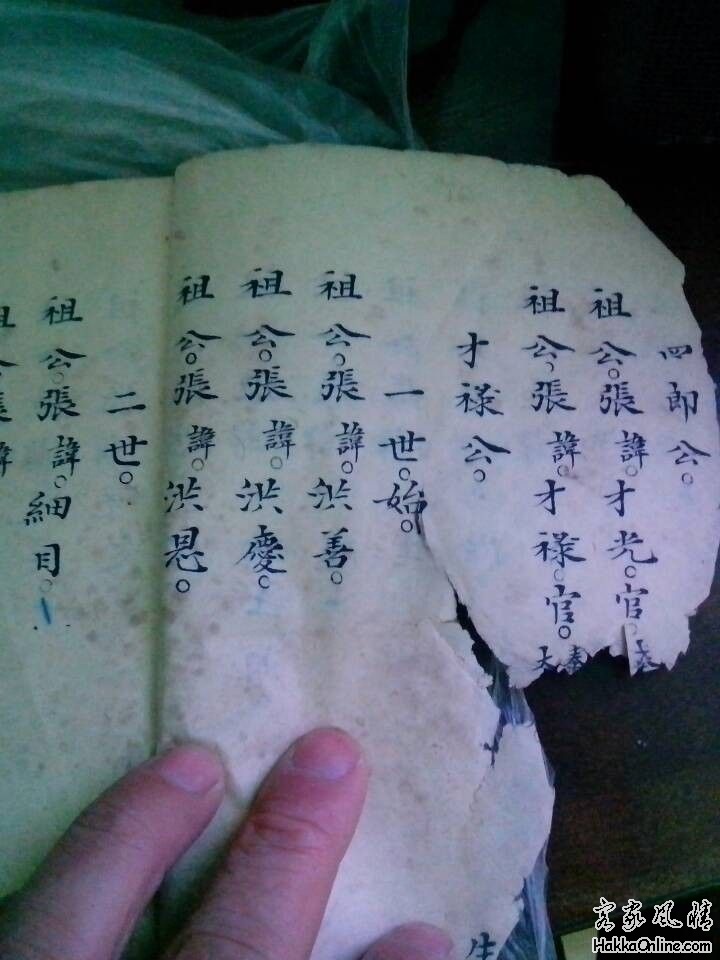 四郎公。
祖公。張諱。才光。官。
祖公、張諱。才禄。官。
才禄公。
一世。始。
祖公。張諱。洪善。
祖公。張諱。洪慶。
祖公。張諱。洪恩。
二世。
祖公。張諱。細目。
客家風情
HakkaOnline.com